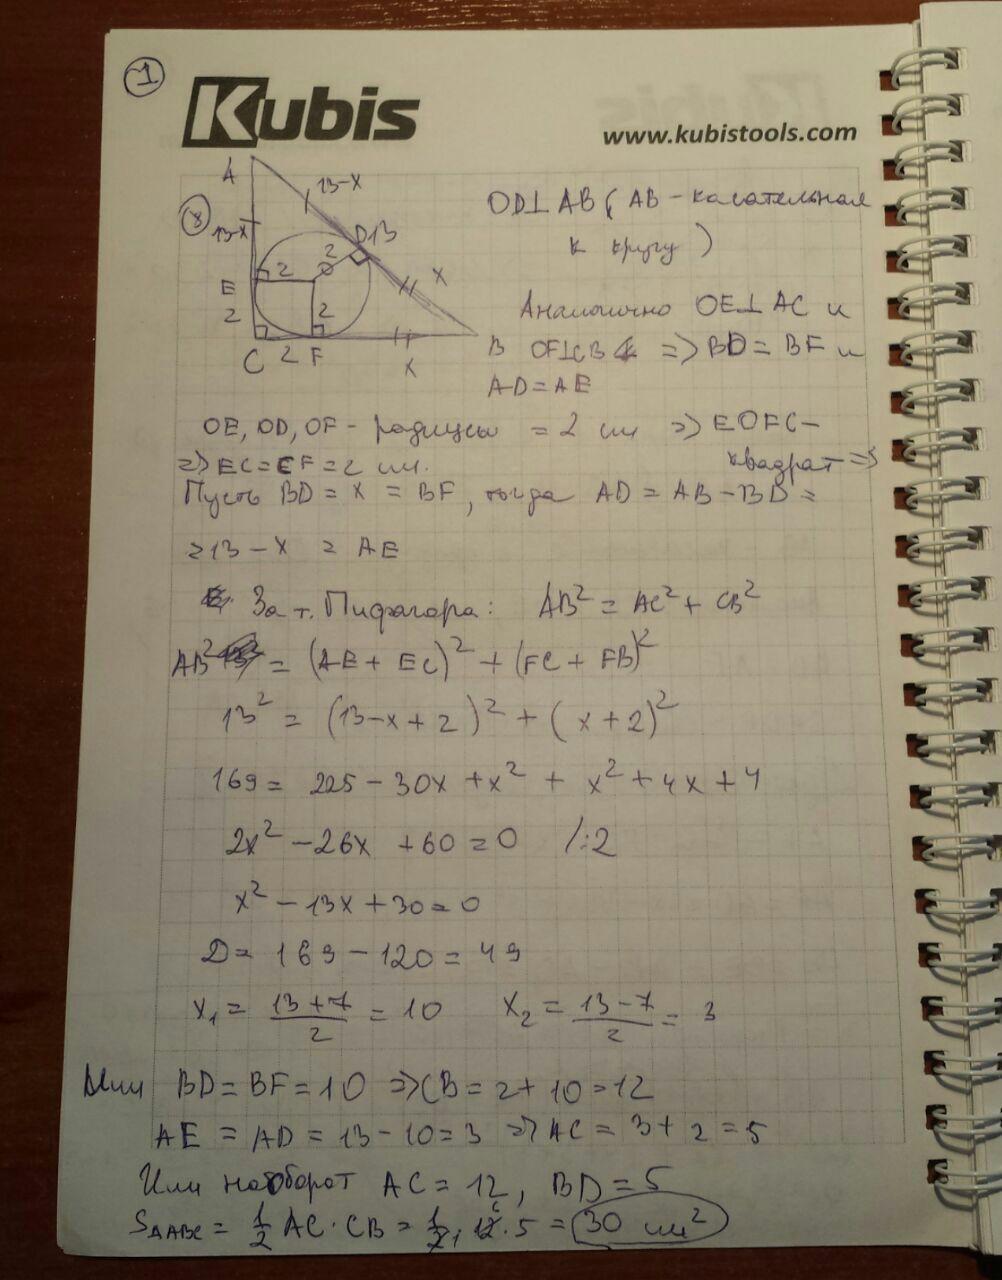 1
Kubis
www.kubistools.com
A
13-x
8
13-x
D 13
2
O
x
E
2
2
2
C 2 F
x
B
OD⊥AB (AB - касательная
к кругу)
Аналогично OE⊥AC и
OF⊥CB => BD = BF и
AD=AE
OE, OD, OF - радиусы = 2 см => EOFC -
квадрат =>
=> EC = CF = 2 см.
Пусть BD = x = BF, тогда AD = AB - BD =
= 13 - x = AE
За т. Пифагора: AB² = AC² + CB²
AB² = (AE + EC)² + (FC + FB)²
13² = (13-x+2)² + (x+2)²
169 = 225 - 30x + x² + x² + 4x + 4
2x² - 26x + 60 = 0 /:2
x² - 13x + 30 = 0
D = 169 - 120 = 49
x₁ = (13+7)/2 = 10 x₂ = (13-7)/2 = 3
Или BD = BF = 10 => CB = 2 + 10 = 12
AE = AD = 13 - 10 = 3 => AC = 3 + 2 = 5
Или наоборот AC = 12, BD = 5
S△ABC = 1/2 AC · CB = 1/2 · 12 · 5 = 30 см²